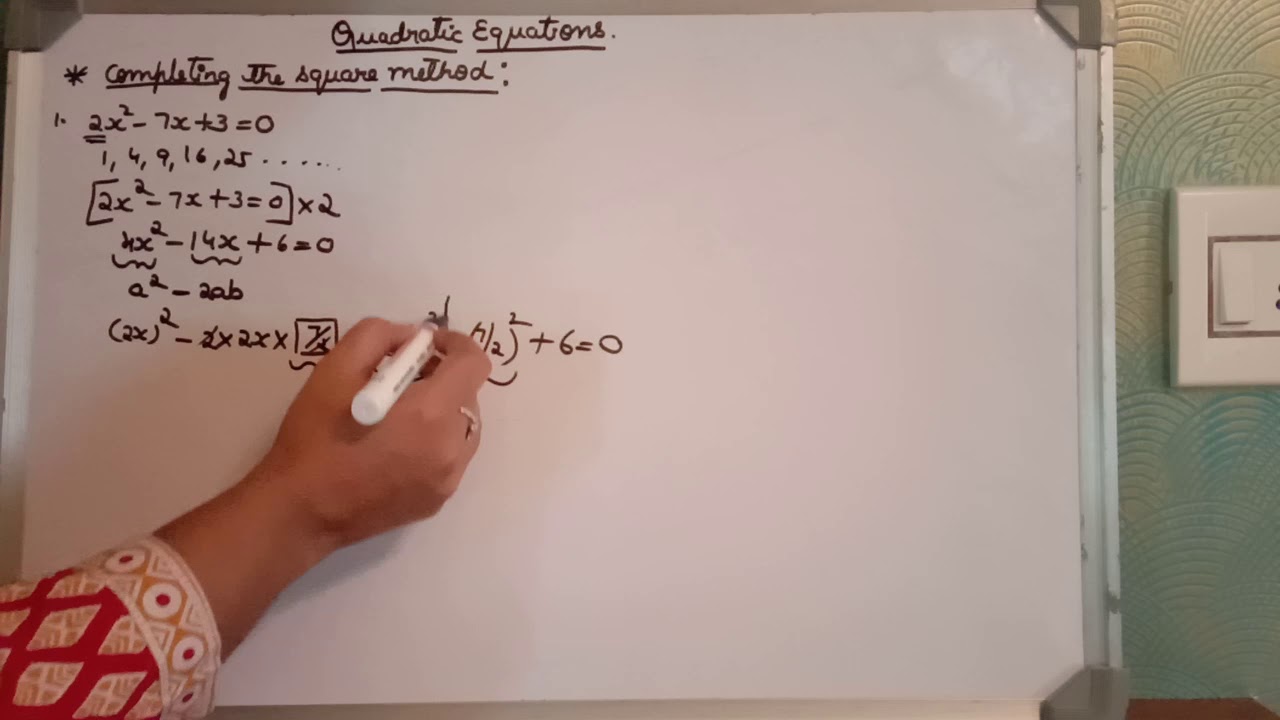 Quadratic Equations.
* Completing the square method:
1. 2x² - 7x + 3 = 0
1, 4, 9, 16, 25 . . . . . .
[2x² - 7x + 3 = 0] × 2
4x² - 14x + 6 = 0
a² - 2ab
(2x)² - 2 × 2x × 7/2 (7/2)² + 6 = 0